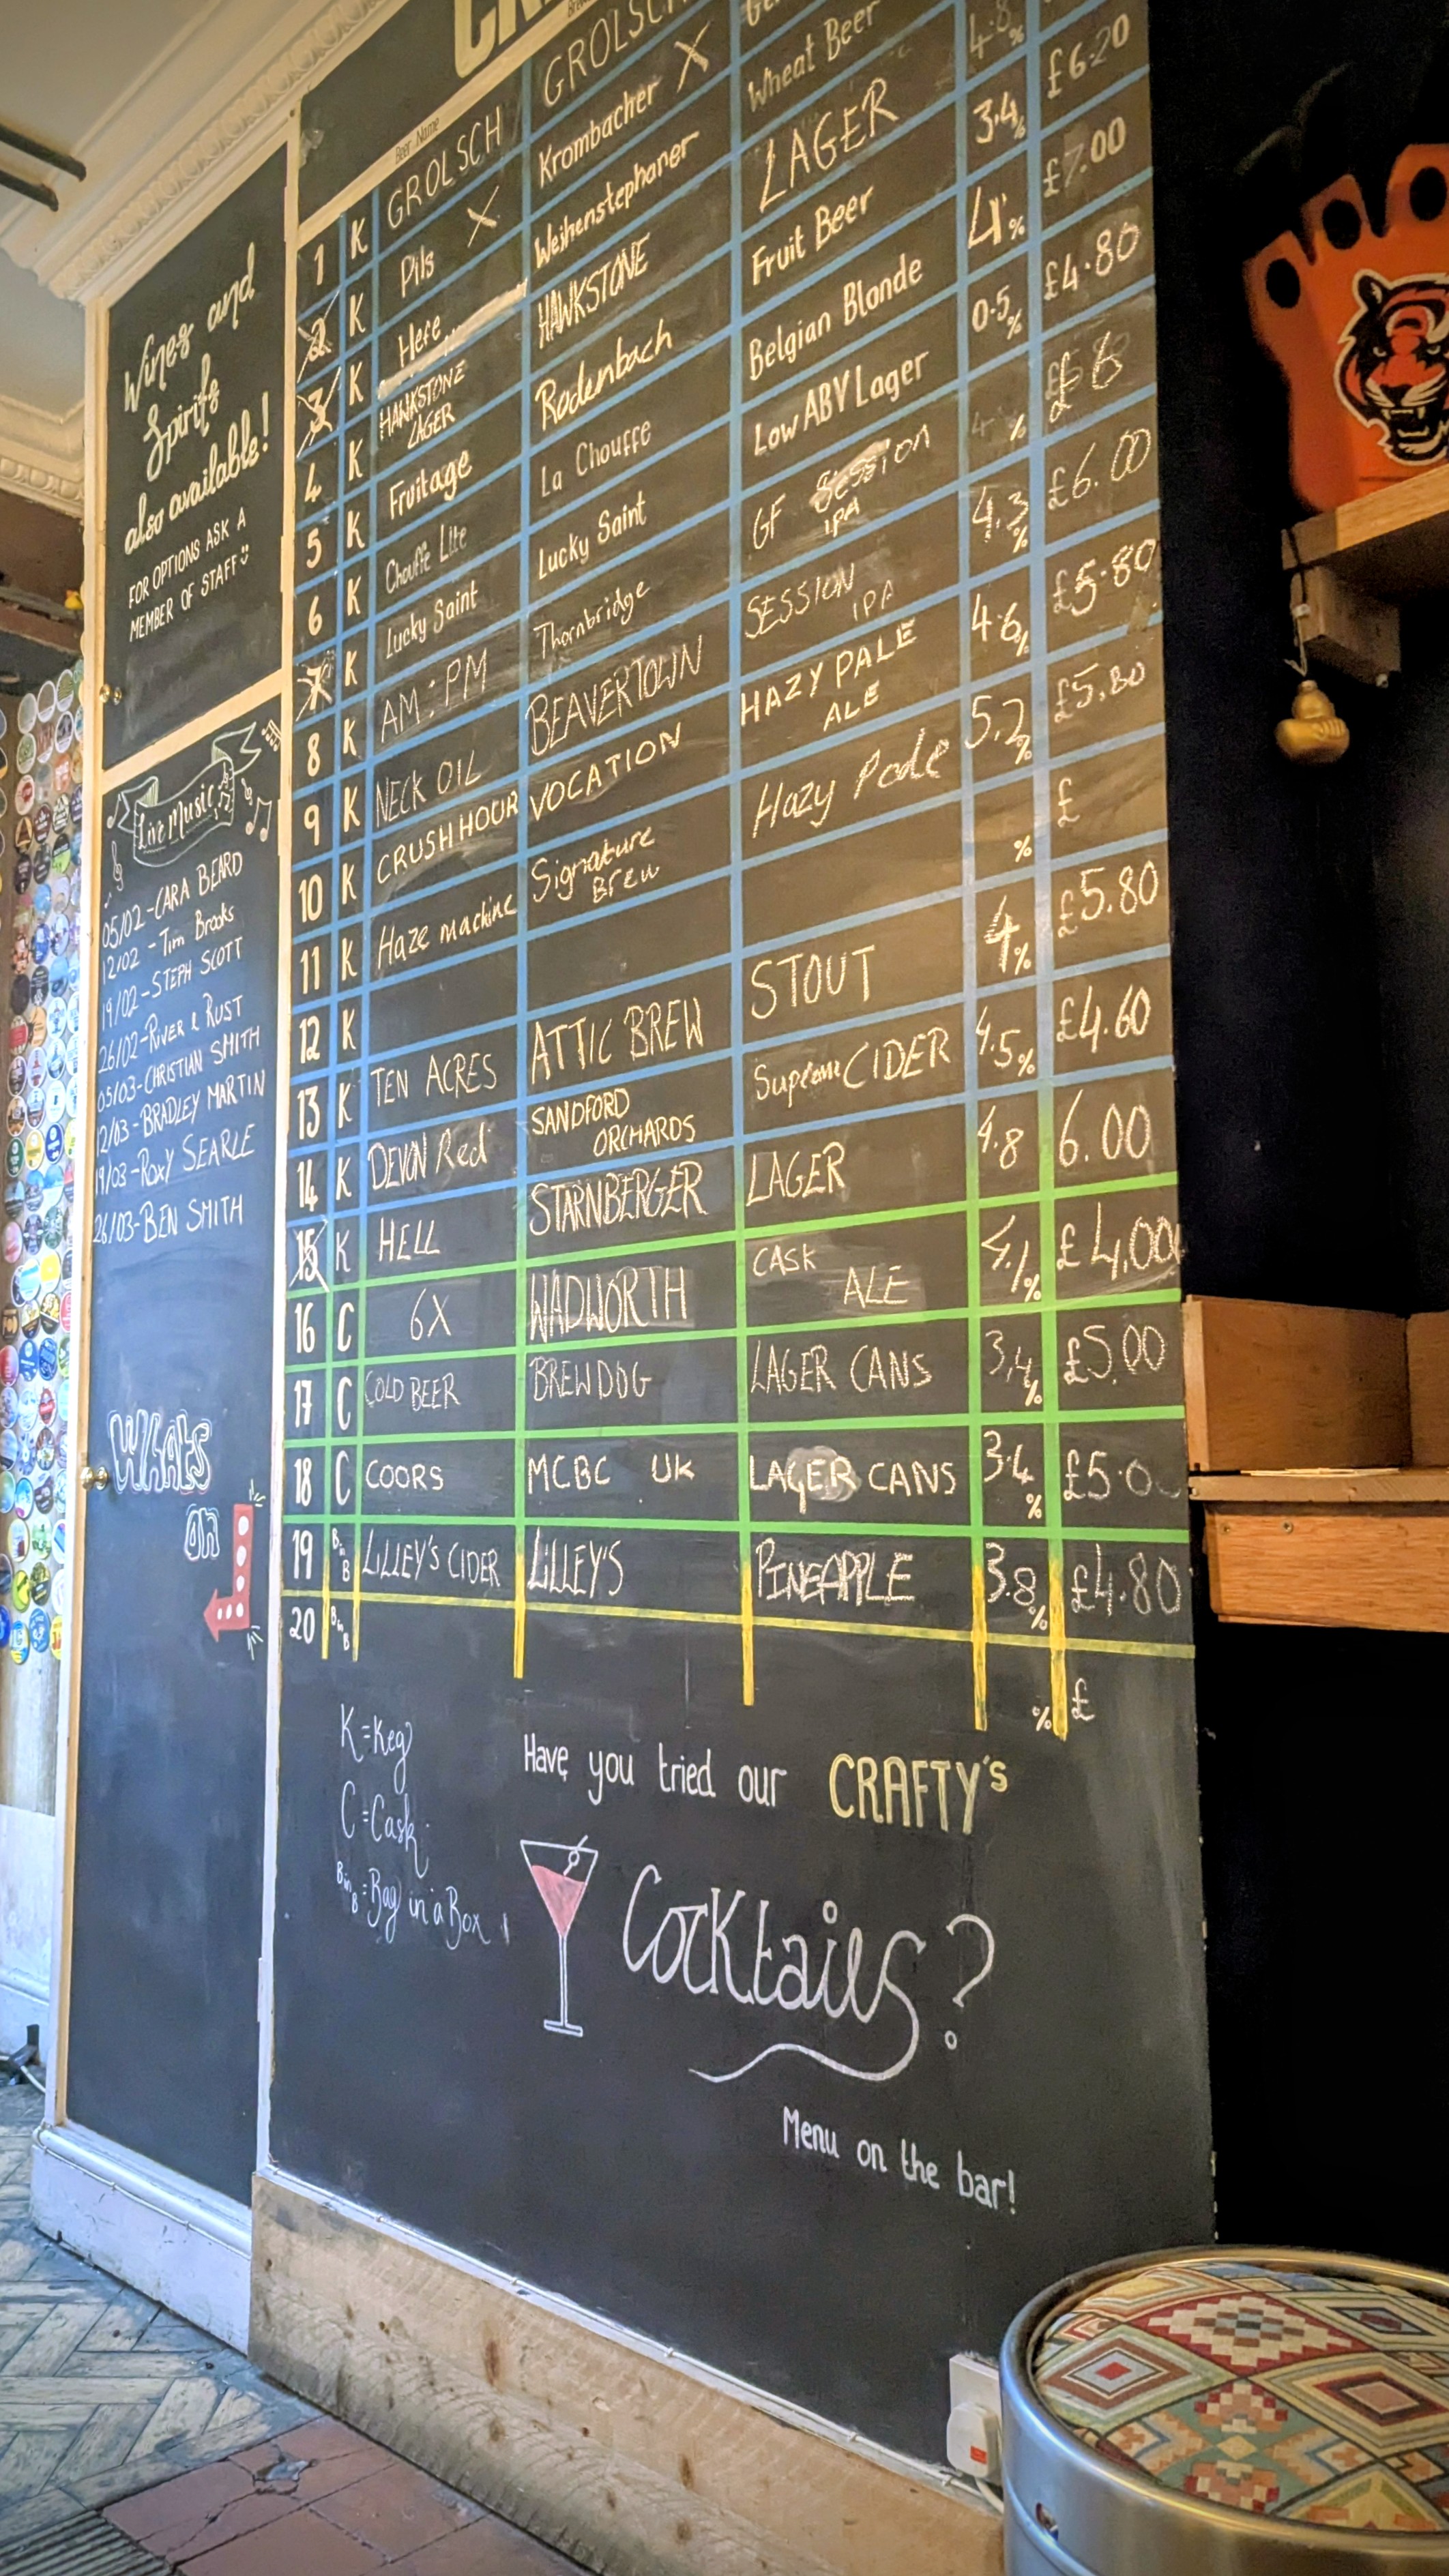 Wines and
Spirits
also available!
FOR OPTIONS ASK A
MEMBER OF STAFF
Live Music
05/02-CARA BEARD
12/02-Tim Brooks
19/02-STEPH SCOTT
26/02-RIVER & RUST
05/03-CHRISTIAN SMITH
12/03-BRADLEY MARTIN
19/03-ROXY SEARLE
26/03-BEN SMITH
WHATS
on
Beer Name
1 K GROLSCH GROLSCH
2 K Pils X Krombacher X
3 K Hefe Weihenstephaner Wheat Beer
4 K HAWKSTONE LAGER HAWKSTONE LAGER 4.8%
5 K Fruitage Rodenbach Fruit Beer 3.4% £6.20
6 K Chouffe Lite La Chouffe Belgian Blonde 4% £7.00
7 K Lucky Saint Lucky Saint Low ABV Lager 0.5% £4.80
8 K AM:PM Thornbridge GF SESSION IPA 4% £6
9 K NECK OIL BEAVERTOWN SESSION IPA 4.3% £6.00
10 K CRUSH HOUR VOCATION HAZY PALE ALE 4.6% £5.80
11 K Haze machine Signature Brew Hazy Pale 5.2% £5.80
12 K % £
13 K TEN ACRES ATTIC BREW STOUT 4% £5.80
14 K DEVON Red SANDFORD ORCHARDS Supreme CIDER 4.5% £4.60
15 K HELL STARNBERGER LAGER 4.8 6.00
16 C 6X WADWORTH CASK ALE 4.1% £4.00
17 C COLD BEER BREWDOG LAGER CANS 3.4% £5.00
18 C COORS MCBC UK LAGER CANS 3.4% £5.0
19 B in B LILLEY'S CIDER LILLEY'S PINEAPPLE 3.8% £4.80
20 B in B % £
K=Keg
C=Cask
B in B=Bag in a Box
Have you tried our CRAFTY'S
Cocktails?
Menu on the bar!